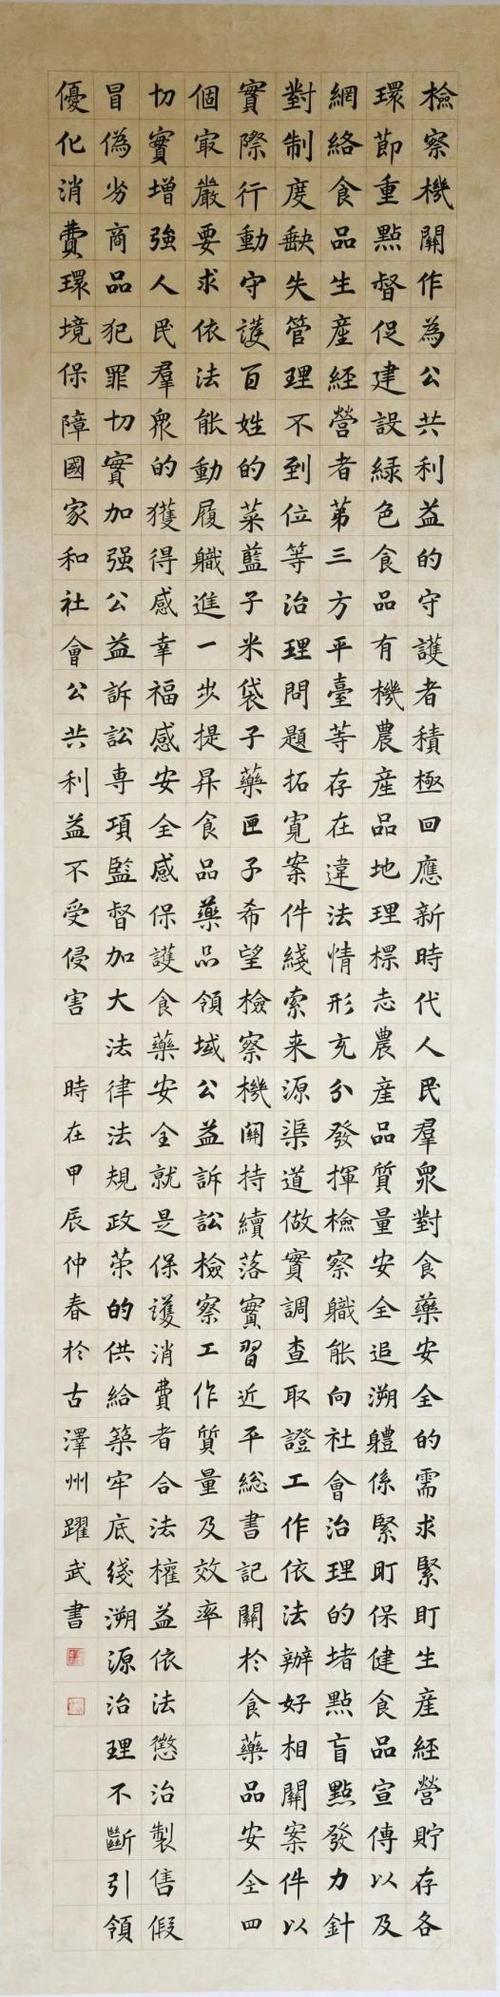 檢察機關作為公共利益的守護者積極回應新時代人民羣衆對食藥安全的需求緊盯生産經營貯存各
環節重點督促建設緑色食品有機農産品地理標志農産品質量安全追溯軆係緊盯保健食品宣傳以及
網絡食品生産經營者第三方平臺等存在違法情形充分發揮檢察軄能向社會治理的堵點盲點發力針
對制度缺失管理不到位等治理問題拓寬案件綫索来源渠道做實調查取證工作依法辦好相關案件以
實際行動守護百姓的菜藍子米袋子藥匣子希望檢察機關持續落實習近平総書記關於食藥品安全四
個冣嚴要求依法能動履軄進一步提昇食品藥品領域公益訴訟檢察工作質量及效率
切實增強人民羣衆的獲得感幸福感安全感保護食藥安全就是保護消費者合法權益依法懲治製售假
冒偽劣商品犯罪切實加强公益訴訟専項監督加大法律法規政策的供給築牢底綫溯源治理不斷引領
優化消費環境保障國家和社會公共利益不受侵害 時在甲辰仲春於古澤州躍武書